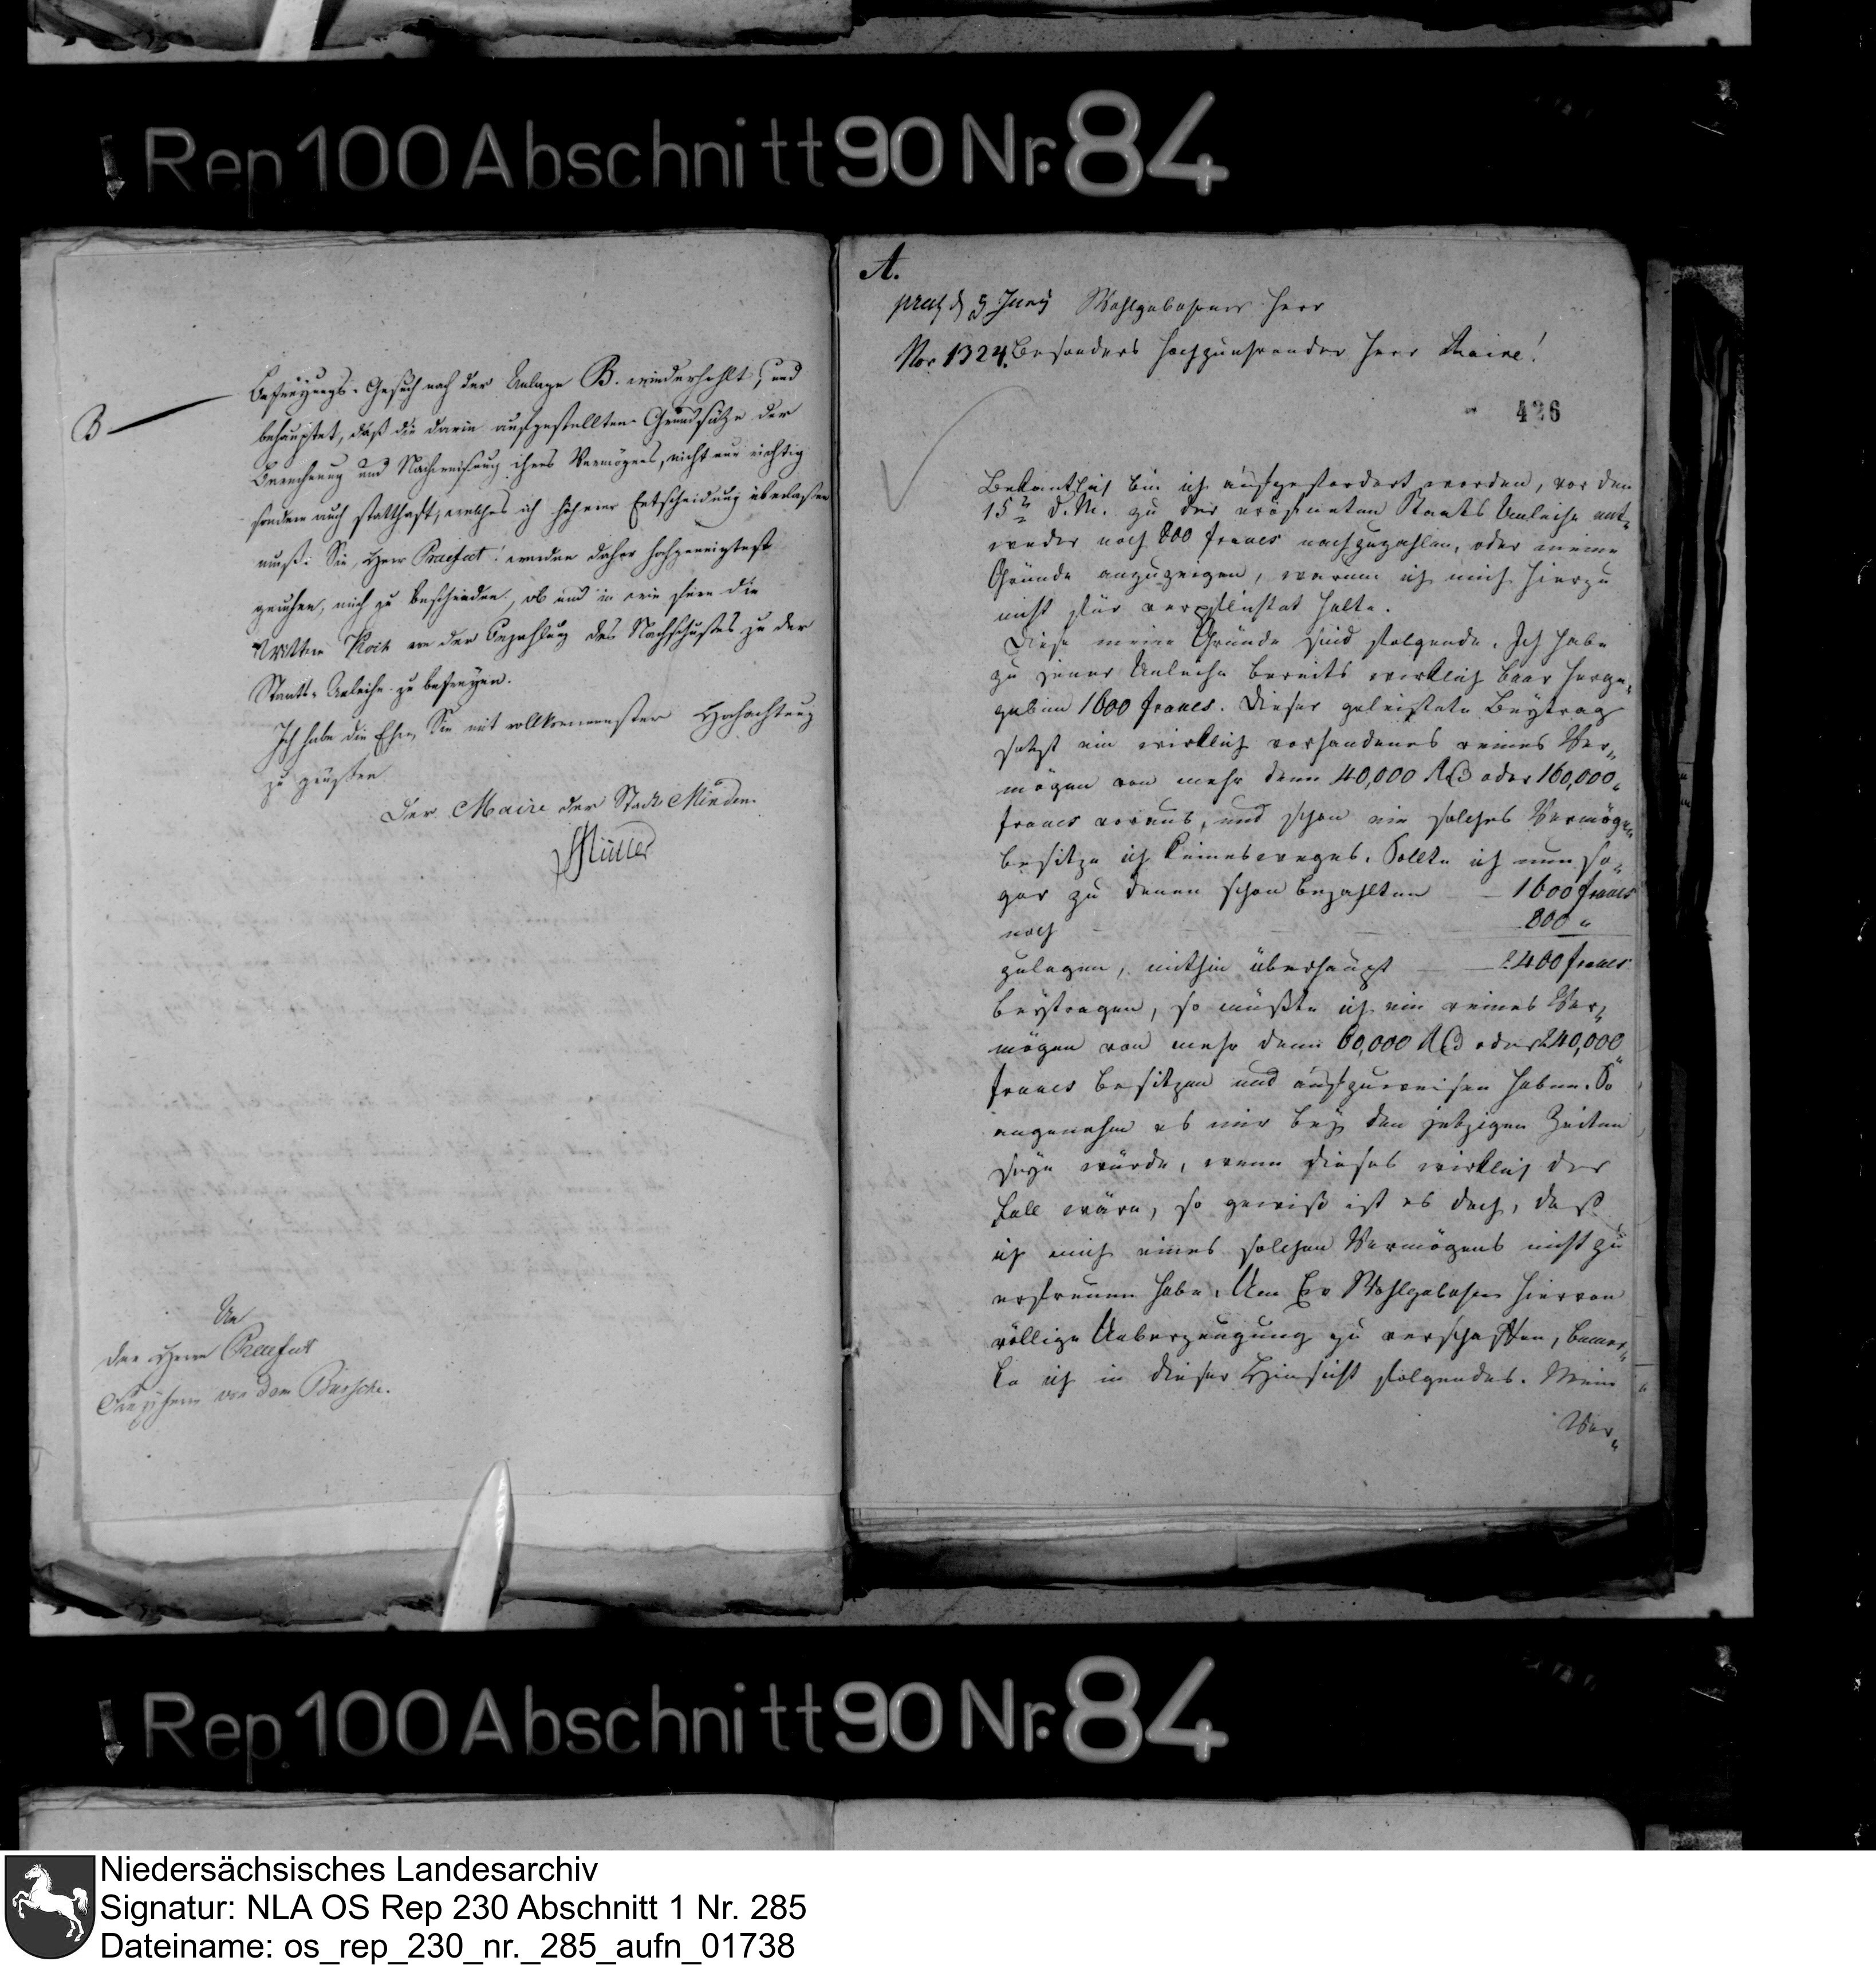 Rep 100 Abschnitt 90 Nr. 84
B
Befreyungs-Gesuch nach der Anlage B. wiederhohlt, und
behauptet, daß die darin aufgestellten Grundsätze der
Berechnung und Nachweisung ihres Vermögens, nicht nur richtig
sondern auch statthaft, welches ich höherer Entscheidung überlaßen
muß. Sie, Herr Praefect! werden daher hochgeneigtest
geruhen, mich zu bescheiden, ob und in wie fern die
Wittwe Kock von der Bezahlung des Nachschußes zu der
Staats-Anleihe zu befreyen.
Ich habe die Ehre, Sie mit vollkommenster Hochachtung
zu grüßen.
Der Maire der Stadt Minden.
Müller
An
den Herrn Praefect
Freyherrn von dem Bussche.
A.
praes d 9 Juny Wohlgebohrner Herr
Nro 1324. Besonders hochzuehrender Herr Maire!
426
Bekantlich bin ich aufgefordert worden, vor den
15ten d. M. zu der eröfneten Staats Anleihe ent-
weder noch 800 francs nachzuzahlen, oder meine
Gründe anzuzeigen, warum ich mich hierzu
nicht für verpflichtet halte.
Diese meine Gründe sind folgende. Ich habe
zu jener Anleihe bereits wirklich baar herge-
geben 1600 francs. Dieser geleistete Beytrag
setzt ein wirklich vorhandenes reines Ver-
mögen von mehr denn 40,000 Rthl oder 160,000
francs voraus, und schon ein solches Vermögen
besitze ich keinesweges. Sollte ich nun so-
gar zu denen schon bezahlten — 1600 francs
noch — 800 "
zulegen, mithin überhaupt — 2400 francs
beytragen, so müßte ich ein reines Ver-
mögen von mehr denn 60,000 Rthl oder 240,000
francs besitzen und aufzuweisen haben. So
angenehm es mir bey den jetzigen Zeiten
seyn würde, wenn dieses wirklich der
Fall wäre, so gewiß ist es doch, daß
ich mich eines solchen Vermögens nicht zu
erfreuen habe. Um Ew Wohlgebohren hiervon
völlige Ueberzeugung zu verschaffen, bemer-
ke ich in dieser Hinsicht folgendes. Mein
Ver-
Rep 100 Abschnitt 90 Nr. 84
Niedersächsisches Landesarchiv
Signatur: NLA OS Rep 230 Abschnitt 1 Nr. 285
Dateiname: os_rep_230_nr._285_aufn_01738